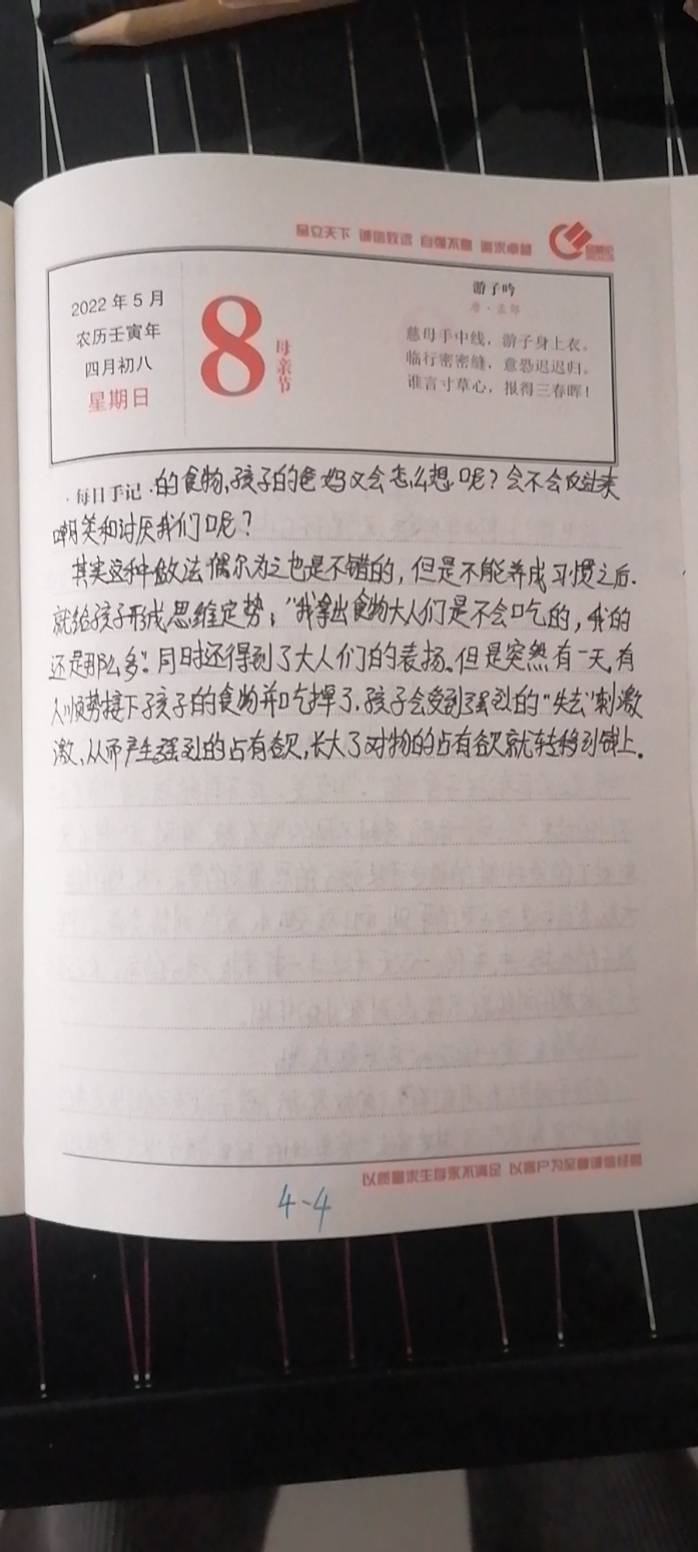 品立天下 诚信致远 自强不息 追求卓越
2022 年 5 月
农历壬寅年
四月初八
星期日
8
母亲节
游子吟
唐·孟郊
慈母手中线，游子身上衣。
临行密密缝，意恐迟迟归。
谁言寸草心，报得三春晖！
·每日手记·的食物,孩子的爸妈又会怎么想呢？会不会反过来
嘲笑和讨厌我们呢？
其实这种做法偶尔为之也是不错的，但是不能养成习惯之后.
就给孩子形成思维定势；“我拿出食物大人们是不会吃的，我的
还是那么多”. 同时还得到了大人们的表扬.但是突然有一天,有
人顺势接下孩子的食物并吃掉了.孩子会受到强烈的“失去”刺激
激,从而产生强烈的占有欲,长大了对物的占有欲就转移到钱上.
以质量求生存永不满足 以客户为至尊诚信经营
4-4